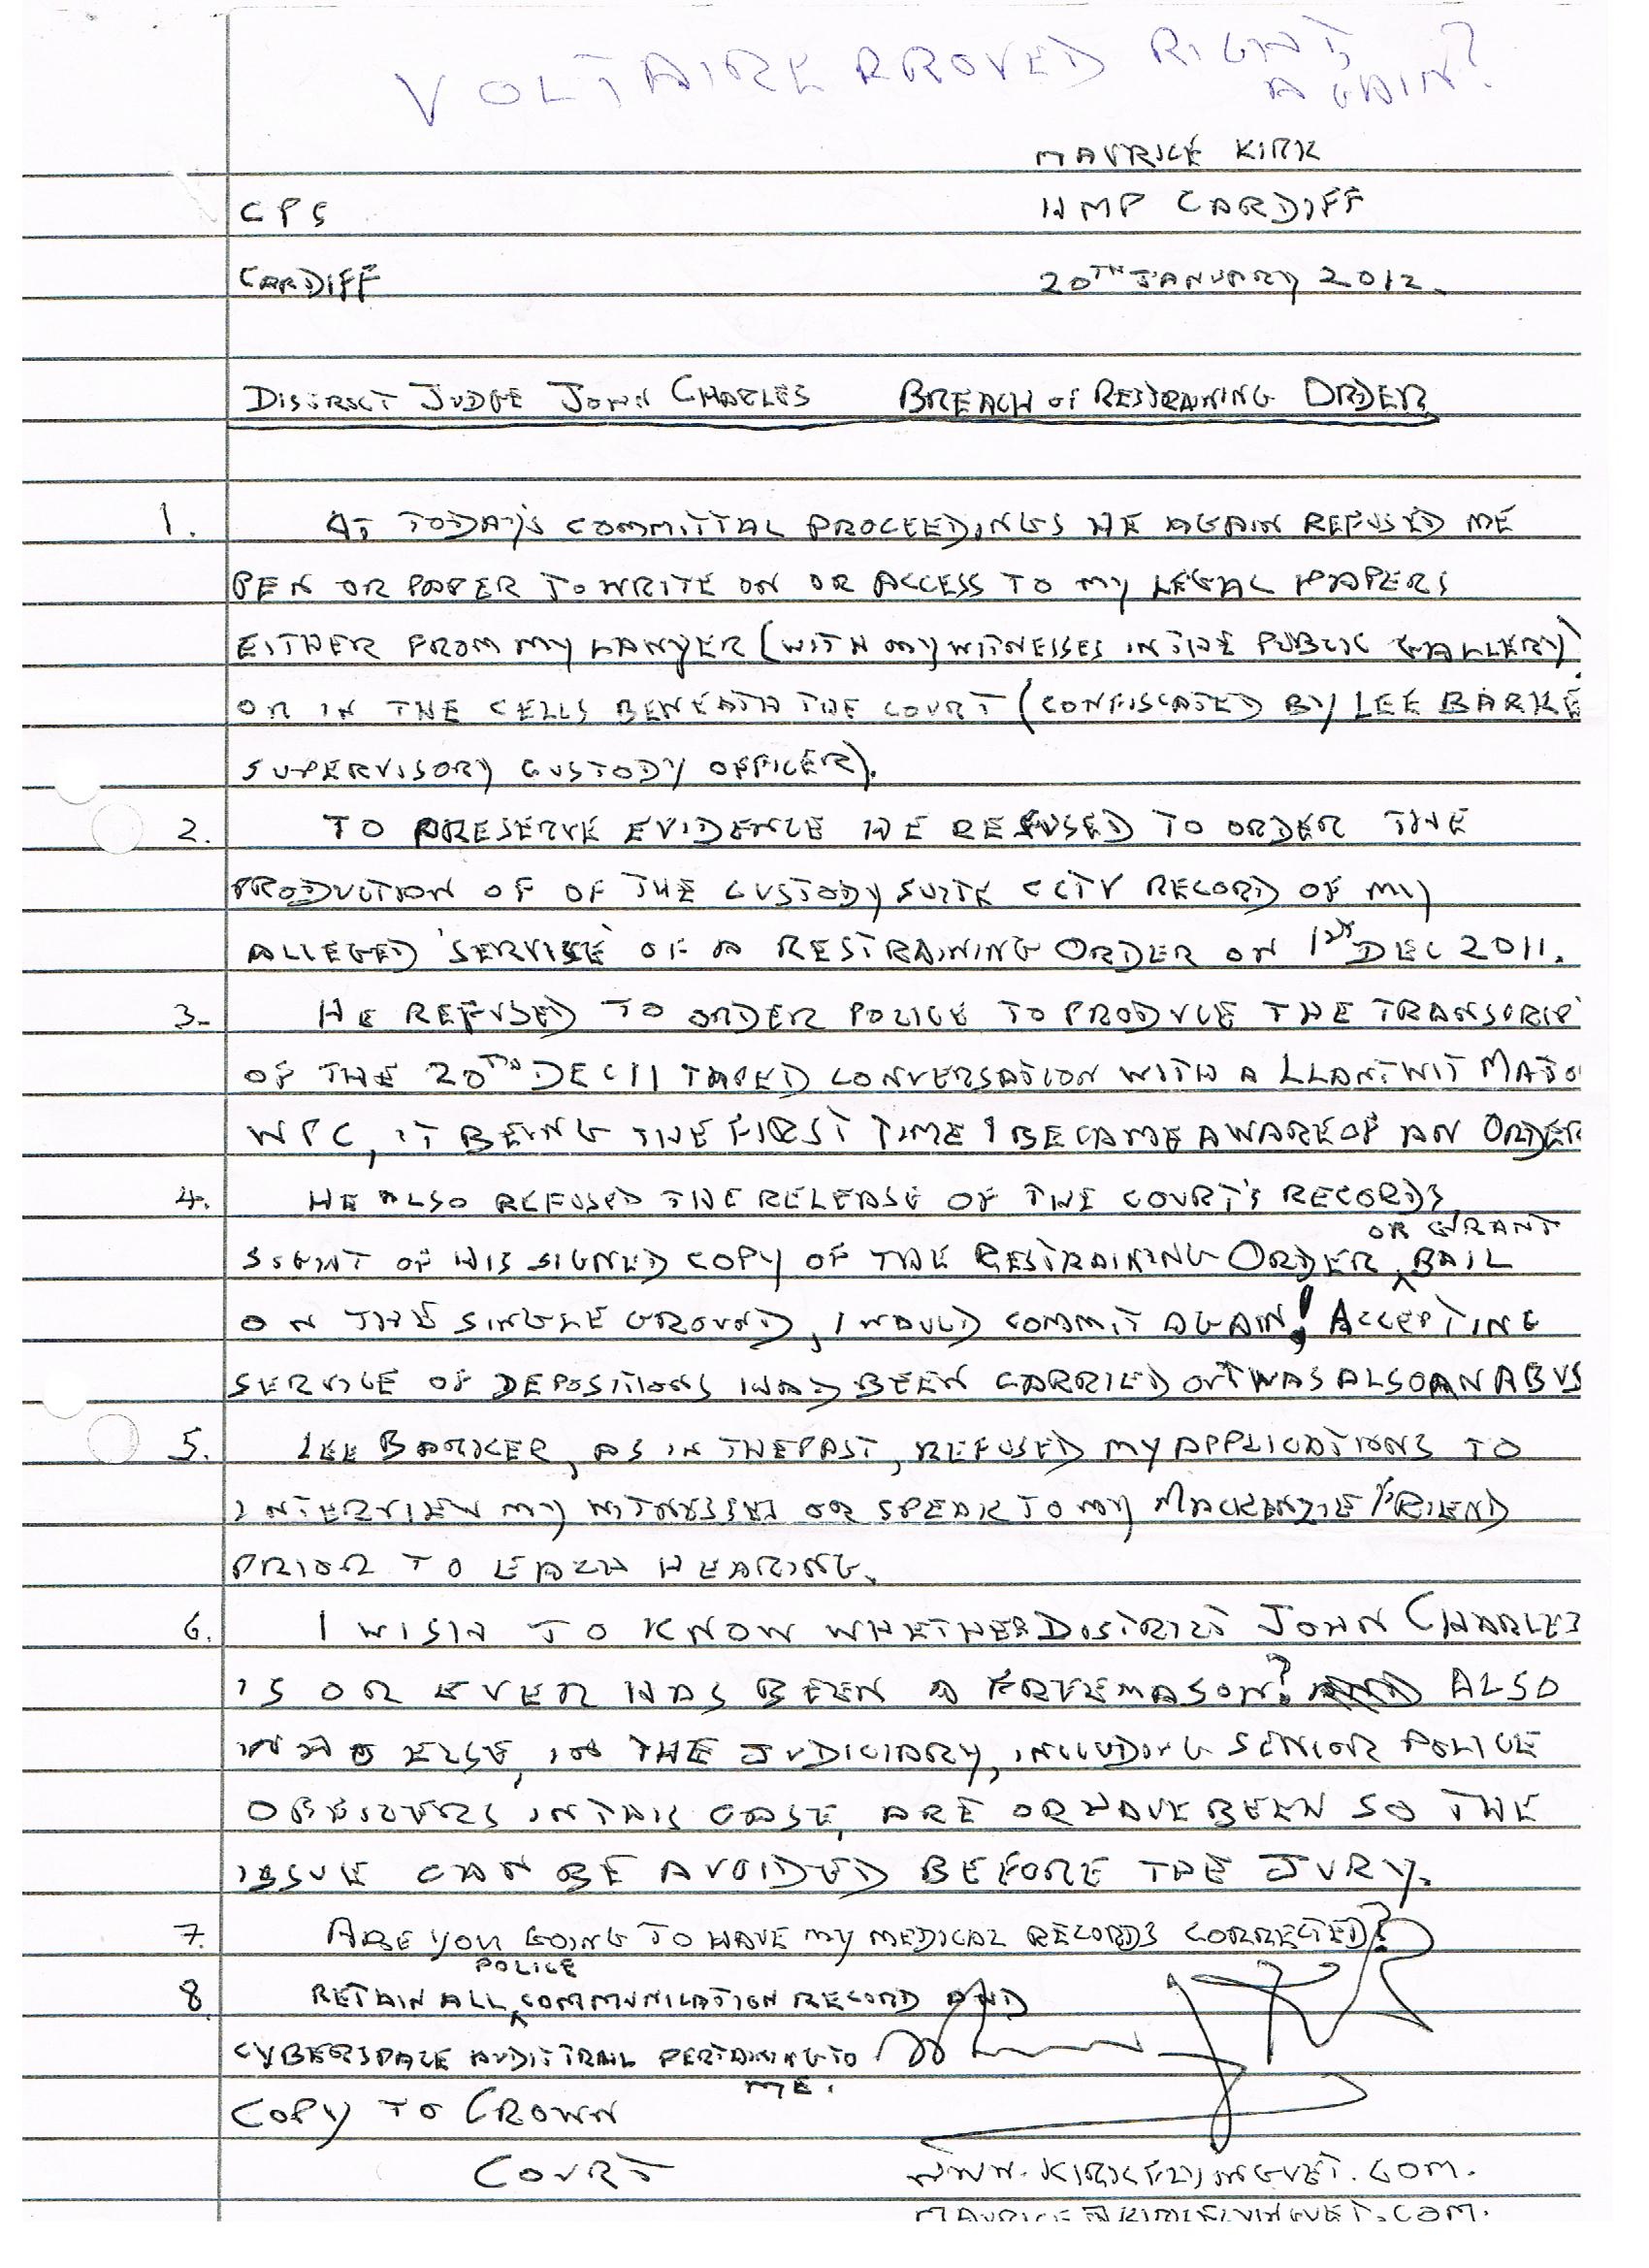 VOLTAIRE PROVED RIGHT
AGAIN?
MAURICE KIRK
CPS
HMP CARDIFF
CARDIFF
20TH JANUARY 2012.
DISTRICT JUDGE JOHN CHARLES BREACH OF RESTRAINING ORDER
1. AT TODAY'S COMMITTAL PROCEEDINGS HE AGAIN REFUSED ME
PEN OR PAPER TO WRITE ON OR ACCESS TO MY LEGAL PAPERS
EITHER FROM MY LAWYER (WITH MY WITNESSES IN THE PUBLIC GALLERY)
OR IN THE CELLS BENEATH THE COURT (CONFISCATED BY LEE BARKE
SUPERVISORY CUSTODY OFFICER).
2. TO PRESERVE EVIDENCE HE REFUSED TO ORDER THE
PRODUCTION OF OF THE CUSTODY SUITE CCTV RECORD OF MY
ALLEGED 'SERVICE' OF A RESTRAINING ORDER ON 1ST DEC 2011.
3. HE REFUSED TO ORDER POLICE TO PRODUCE THE TRANSCRIP
OF THE 20TH DEC 11 TAPED CONVERSATION WITH A LLANTWIT MAJO
WPC, IT BEING THE FIRST TIME I BECAME AWARE OF AN ORDER
4. HE ALSO REFUSED THE RELEASE OF THE COURT'S RECORDS,
OR GRANT
SIGHT OF HIS SIGNED COPY OF THE RESTRAINING ORDER BAIL
ON THE SINGLE GROUND, I WOULD COMMIT AGAIN! ACCEPTING
SERVICE OF DEPOSITIONS HAD BEEN CARRIED OUT WAS ALSO AN ABUS
5. LEE BARKER, AS IN THE PAST, REFUSED MY APPLICATIONS TO
INTERVIEW MY WITNESSES OR SPEAK TO MY MACKENZIE FRIEND
PRIOR TO EACH HEARING.
6. I WISH TO KNOW WHETHER DISTRICT JOHN CHARLES
IS OR EVER HAS BEEN A FREEMASON? AND ALSO
WHO ELSE, IN THE JUDICIARY, INCLUDING SENIOR POLICE
OFFICERS IN THIS CASE, ARE OR HAVE BEEN SO THE
ISSUE CAN BE AVOIDED BEFORE THE JURY.
7. ARE YOU GOING TO HAVE MY MEDICAL RECORDS CORRECTED?
POLICE
8 RETAIN ALL COMMUNICATION RECORD AND
CYBERSPACE AUDIT TRAIL PERTAINING TO
ME.
COPY TO CROWN
COURT
WWW.KIRKFLYINGVET.COM.
MAURICE@KIRKFLYINGVET.COM.